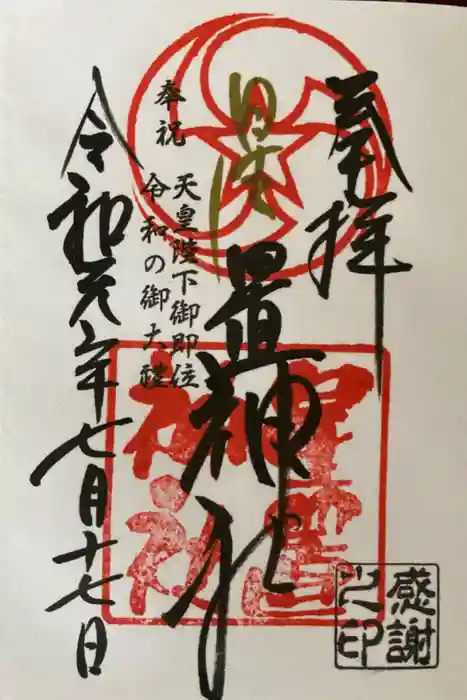 奉拝
置神社
奉祝
天皇陛下御即位
令和の御大禮
令和元年七月十七日
星置
神社
感謝
之印